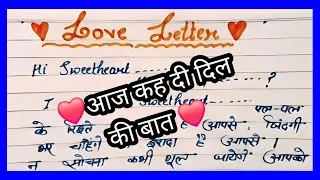 Love Letter
Hi Sweetheart
?
I Sweetheart
आज कह दी दिल
की बात
पल-पल
के रिश्ते है आपसे, जिंदगी
भर चाहेंगे इरादा है आपसे।
न सोचना कभी भूल जायेंगे आपको